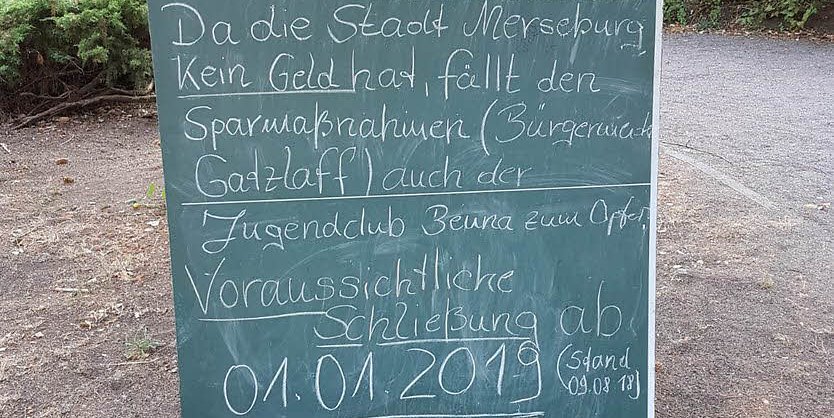 Da die Stadt Merseburg
Kein Geld hat, fällt den
Sparmaßnahmen (Bürgermeist
Gatzlaff) auch der
Jugendclub Beuna zum Opfer.
Voraussichtliche
Schließung ab
01.01.2019 (Stand
09.08.18)